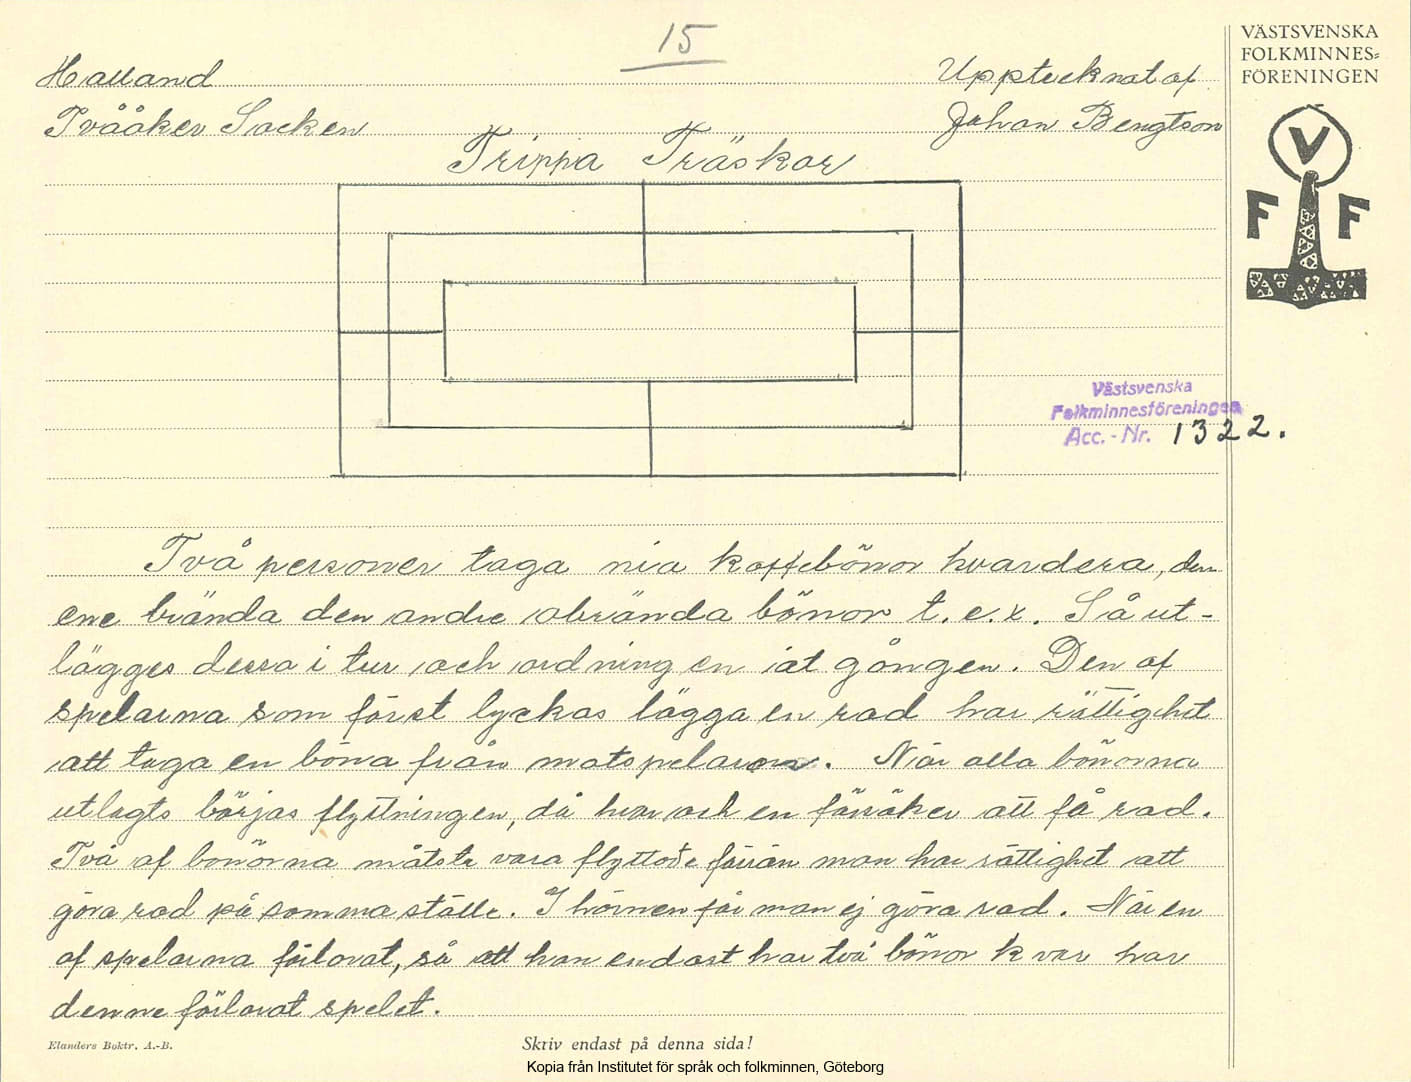 15
VÄSTSVENSKA
FOLKMINNES=
FÖRENINGEN
Halland
Upptecknat af
Tvååker Socken
Johan Bengtson
Trippa Träskor
V
F F
Västsvenska
Folkminnesföreningen
Acc. - Nr. 1322.
Två personer taga nia kaffebönor hvardera, den
ene brända den andre obrända bönor t. e. x. Så ut-
lägges dessa i tur och ordning en i at gången. Den af
spelarna som först lyckas lägga en rad har rättighet
att taga en böna från motspelaren. När alla bönorna
utlagts börjas flyttningen, då hvar och en försöker att få rad.
Två af bonörna måste vara flyttade förrän man har rättighet att
göra rad på samma ställe. I hörnen får man ej göra rad. När en
af spelarna förlorat, så att han endast har två bönor kvar har
denne förlorat spelet.
Elanders Boktr. A.-B.
Skriv endast på denna sida!
Kopia från Institutet för språk och folkminnen, Göteborg